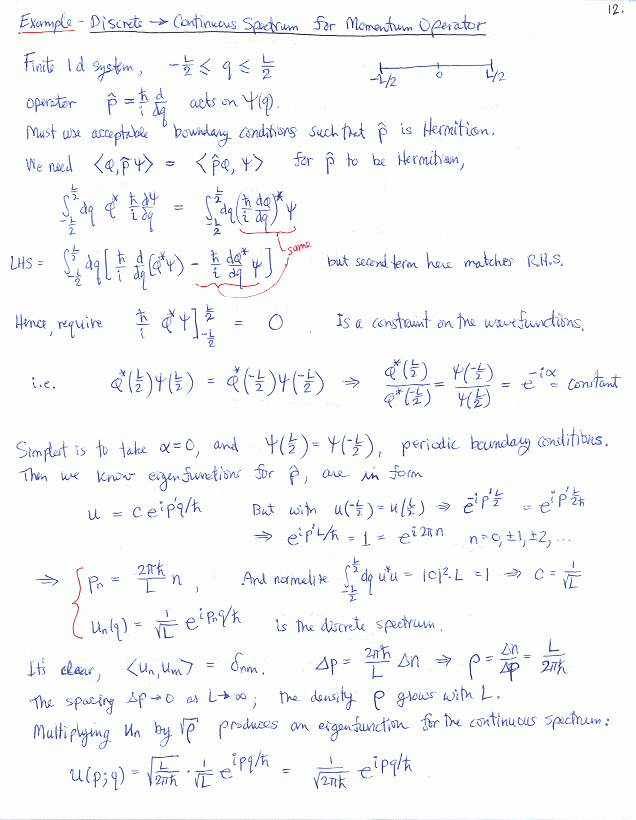 12.
Example - Discrete → Continuous Spectrum for Momentum Operator
Finite 1d system, -L/2 ≤ q ≤ L/2
-L/2 0 L/2
operator p̂ = ħ/i d/dq acts on Ψ(q).
Must use acceptable boundary conditions such that p̂ is Hermitian.
We need ⟨φ, p̂Ψ⟩ = ⟨p̂φ, Ψ⟩ for p̂ to be Hermitian,
∫_{-L/2}^{L/2} dq φ* ħ/i dΨ/dq = ∫_{-L/2}^{L/2} dq (ħ/i dφ/dq)* Ψ
same
LHS = ∫_{-L/2}^{L/2} dq [ħ/i d/dq (φ*Ψ) - ħ/i dφ*/dq Ψ] but second term here matches R.H.S.
Hence, require ħ/i φ*Ψ]_{-L/2}^{L/2} = 0. Is a constraint on the wavefunctions,
i.e. φ*(L/2)Ψ(L/2) = φ*(-L/2)Ψ(-L/2) ⇒ φ*(L/2)/φ*(-L/2) = Ψ(-L/2)/Ψ(L/2) = e^{-iα} = constant
Simplest is to take α=0, and Ψ(L/2) = Ψ(-L/2), periodic boundary conditions.
Then we know eigenfunctions for p̂, are in form
u = c e^{ip'q/ħ} But with u(-L/2) = u(L/2) ⇒ e^{-ip'L/2} = e^{ip'L/2ħ}
⇒ e^{ip'L/ħ} = 1 = e^{i2πn} n=0,±1,±2,...
⇒ { p_n = 2πħ/L n, And normalize ∫_{-L/2}^{L/2} dq u*u = |c|²·L = 1 ⇒ c = 1/√L
u_n(q) = 1/√L e^{ip_nq/ħ} is the discrete spectrum.
It's clear, ⟨u_n, u_m⟩ = δ_nm. Δp = 2πħ/L Δn ⇒ ρ = Δn/Δp = L/2πħ
The spacing Δp → 0 as L → ∞; the density ρ grows with L.
Multiplying u_n by √ρ produces an eigenfunction for the continuous spectrum:
u(p;q) = √(L/2πħ) · 1/√L e^{ipq/ħ} = 1/√(2πħ) e^{ipq/ħ}